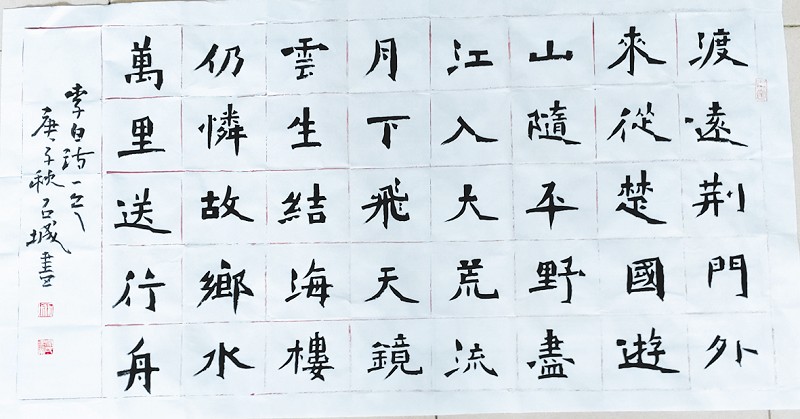 渡遠荆門外
來從楚國遊
山隨平野盡
江入大荒流
月下飛天鏡
雲生結海樓
仍憐故鄉水
萬里送行舟
李白詩一首
庚子秋石城書